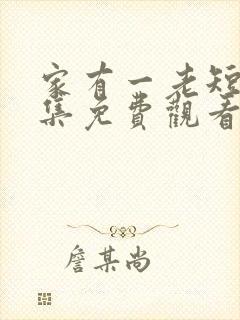 家有一老短
集免費觀看
詹某尚